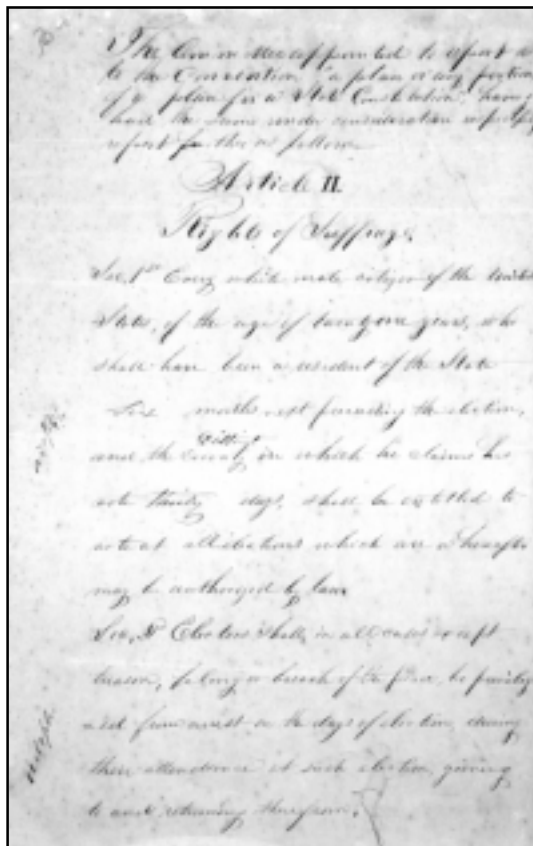 The Committee appointed to report a
to the Convention "a plan or any portion
of a plan for a State Constitution, having
had the same under consideration respectfully
report further as follows
Article II.
Rights of Suffrage.
Sec. 1st Every white male citizen of the United
States, of the age of twenty one years, who
shall have been a resident of the State
Six months next preceding the election,
District
and the County in which he claims his
vote twenty days, shall be entitled to
vote at all elections which are or hereafter
may be authorized by law
Sec. 2d Electors shall, in all cases except
treason, felony or breach of the peace, be privileg
ed from arrest on the days of election, during
their attendance at such election, going
to and returning therefrom.
Adopted